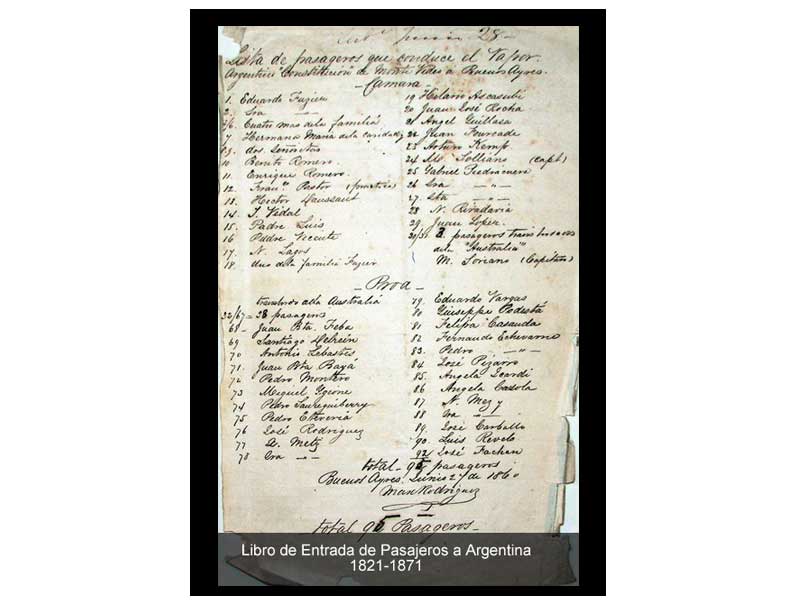 Junio 28
Lista de pasageros que conduce el Vapor
Argentino "Constitucion" de Monte Video a Buenos Ayres.
Camara
1. Eduardo Fugier
2. Sra — " —
3/6. Cuatro mas de la familia
7 Hermana Maria de la caridad
8/9. dos Señoritas
10 Benito Romero.
11. Enrique Romero.
12. Fran.º Pastor (practico)
13. Hector
14. J. Vidal
15. Padre Luis
16 Padre Vicente
17. N. Lagos
18. uno de la familia Fugier
19 Hilario Ascasubi
20 Juan José Rocha
21 Angel Guillasa
22 Julian Fourcade
23 Arturo Kemp
24 Solliano (capt)
25 Gabriel Piedracueva
26 Sra — " —
27. Sta — " —
28 N. Rivadavia
29. Juan Lopez.
30/31. 2 pasageros trasbordados
de la "Australia"
M. Soriano (Capitan)
Proa
de la Australia
32/67 = 38 pasageros
68 - Juan Bta. Feba
69 Santiago
70 Antonio Lebastes
71. Juan Bta Bayá
72 Pedro Montero
73 Miguel
74 Pedro
75 Pedro Etcheveria
76 José Rodriguez
77 A. Metz
78 Sra — " —
79. Eduardo Vargas
80 Giuseppe Podestá
81 Felipa Casauda
82 Fernando Echevarne
83. Pedro — " —
84 José Pizarro
85. Angela Icardi
86 Angela Casola
87 N. Mez y
88 Sra
89. José Carballo
90. Luis Revelo
92/ José Fachen
total 95 pasageros
Buenos Ayres Junio 27 de 1860
Man Rodriguez
total 95 Pasageros
Libro de Entrada de Pasajeros a Argentina
1821-1871